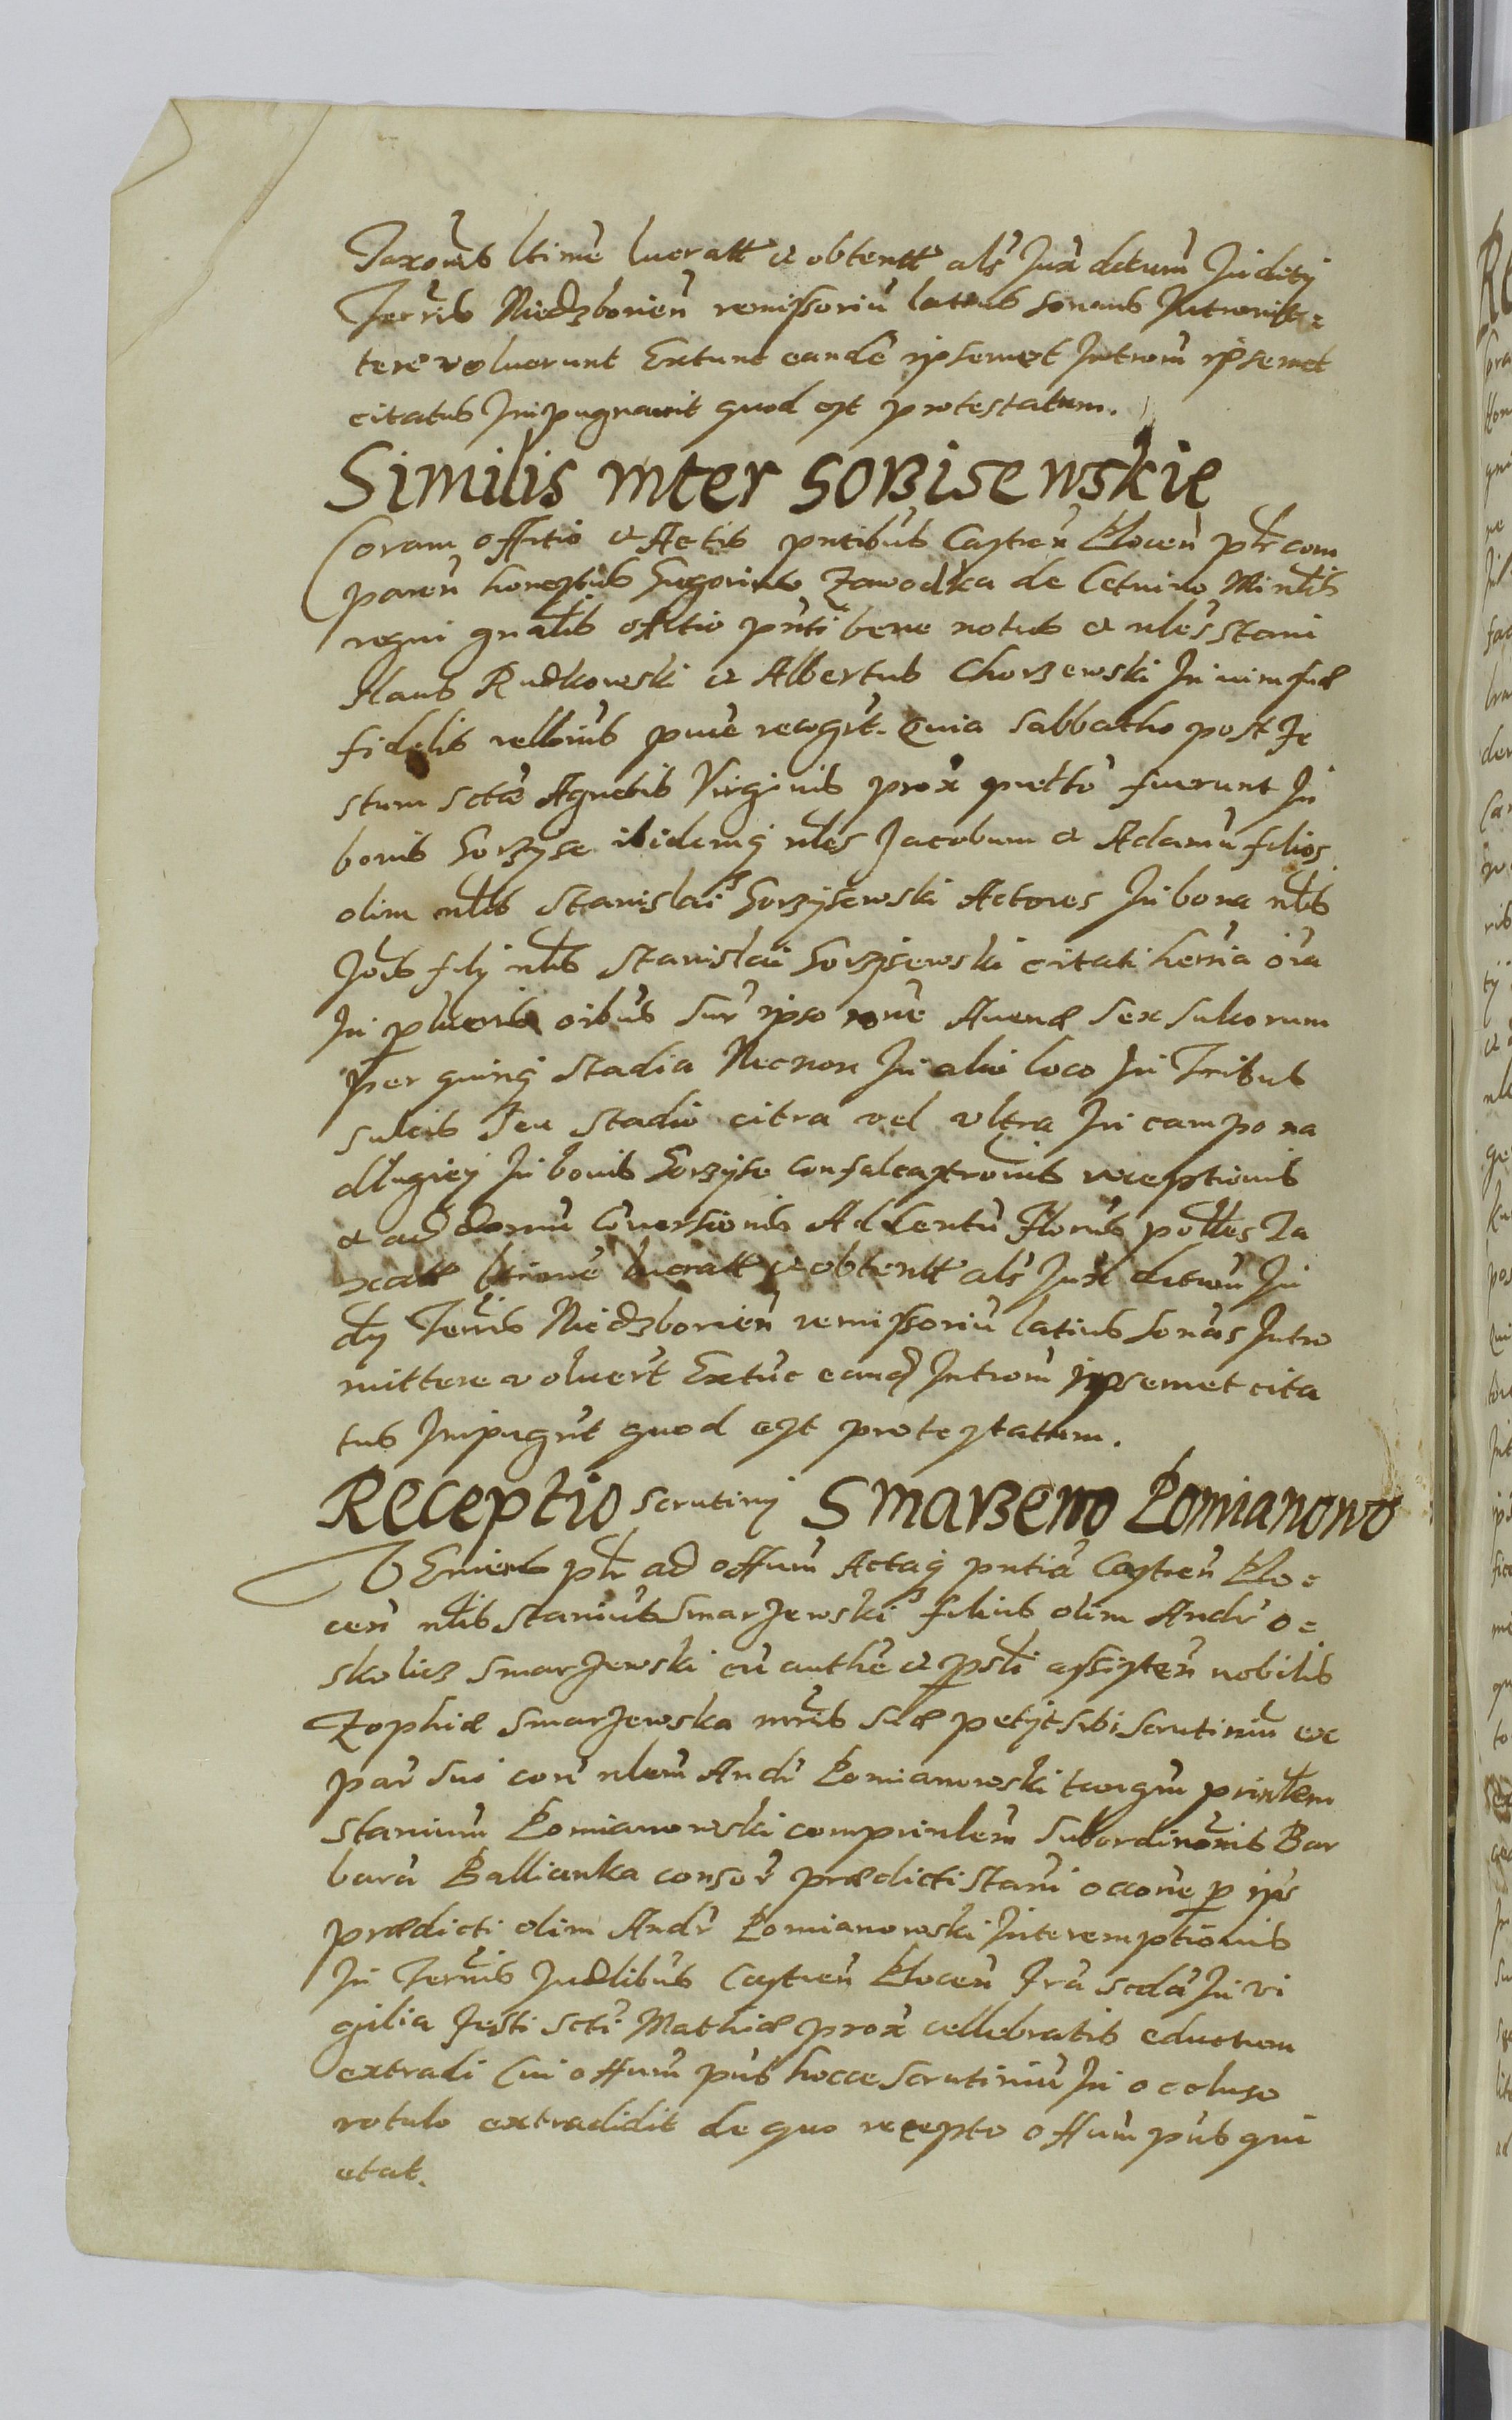 Taxoms ltime lucratt et obtentt als Jux detum Judity
Terris Niedzborien remissoriu latius sonans Intromit=
tere voluerunt Extunc eande ipsemet Introm ipsemet
citatus Impugnavit quod est protestatum.
Similis inter Gorzisewskie
Coram offitio et Actis pntibus Castren Plocen plr com
paren honestus Gregorius Zawodka de Cetnino Minlis
regni gnalis offitio pnti bene notus et nles Stani
slaus Rudkowski et Albertus Chorzewski In vim suæ
fidelis relloins pnue recogrt. Quia Sabbatho post Fe
stum sctæ Agnetis Virginis prox pretto fuerunt In
bonis Gorzyse ibidemq nles Jacobum et Adamu filios
olim nlis Stanislai Gorzysewski Actores In bona nlis
Jois fily nlis Stanislai Gorzisewski citati heria oia
In plueris oibus Sur ipso rone Avenæ sex sulcorum
per quinq stadia Necnon In alio loco In Tribus
sulcis seu stadio citra vel ultra In campo na
dlugiey In bonis Gorzyse consalcastroms receptionis
et ad domu Coversionis Ad Centu Florus polles Ta
xatt ltime lucratt et obtentt als Jux detum Ju
dy Terris Niedzborien remissoriu latius sonas Intro
mittere voluert Extuc eand Introm ipsemet cita
tus Impugrt quod est protestatum.
Receptio scrutiny Smarzewo Łomianowo
Veniens plr ad offum Actaq pntia Castren Plo=
cen nlis Stanius Smarzewski filius olim Andr o=
skolicz Smarzewski cu authe et psli assisten nobilis
Zophiæ Smarzewska mris suæ petyt sibi Scrutiniu ex
par sui con nlem Andr Łomianowski tanqm prinlem
Stanium Łomianowski comprinlem Subordinonis Bar
bara Ballianka consor prædicti Stani occone p ips
prædicti olim Andr Łomianowski Interemptionis
In Terris Judlibus Castren Plocen Fra scda In vi
gilia Festi scti Mathiæ prox cellebratis eductum
extradi Cui offum pns hocce Scrutiniu In occluso
rotulo extradidit de quo recepto offum pns qui
etat.